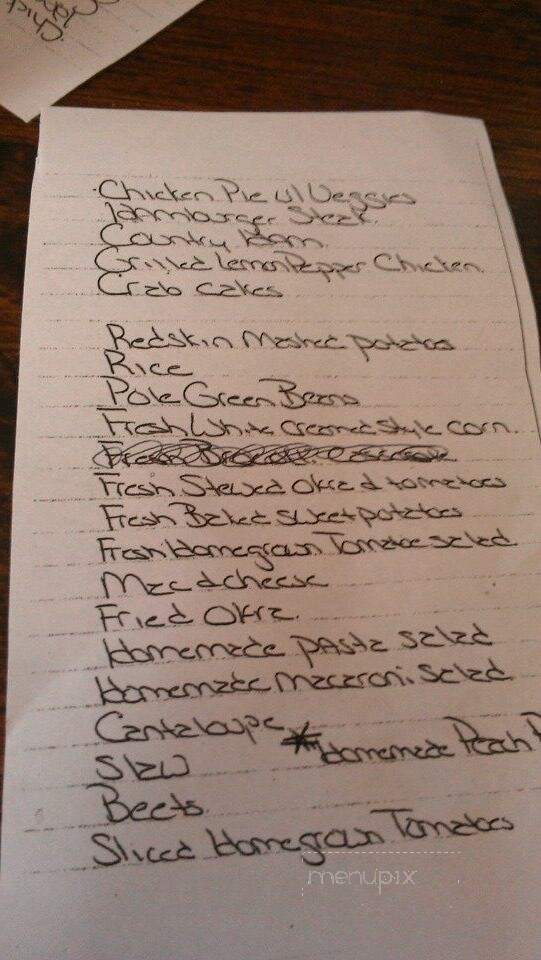 Chicken Pie w/ Veggies
Hamburger Steak
Country Ham
Grilled Lemon Pepper Chicken
Crab cakes
Redskin Mashed potatoes
Rice
Pole Green Beans
Fresh White creamed style corn.
Fresh Stewed Okra & tomatoes
Fresh Baked sweet potatoes
Fresh Homegrown Tomatoe salad
Mac & cheese
Fried Okra
Homemade pasta salad
Homemade macaroni salad
Cantaloupe
*Homemade Peach
Slaw
Beets
Sliced Homegrown Tomatoes
menupix